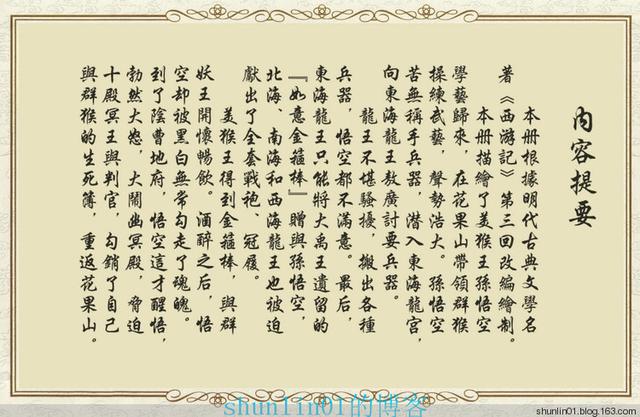 內容提要
本册根據明代古典文學名
著《西游記》第三回改編繪制。
本册描繪了美猴王孫悟空
學藝歸來，在花果山帶領群猴
操練武藝，聲勢浩大。孫悟空
苦無稱手兵器，潜入東海龍宫，
向東海龍王敖廣討要兵器。
龍王不堪騷擾，搬出各種
兵器，悟空都不滿意。最后，
東海龍王只能將大禹王遺留的
『如意金箍棒』贈與孫悟空，
北海、南海和西海龍王也被迫
獻出了全套戰袍、冠履。
美猴王得到金箍棒，與群
妖王開懷暢飲。酒醉之后，悟
空却被黑白無常勾走了魂魄。
到了陰曹地府，悟空這才醒悟，
勃然大怒，大鬧幽冥殿，脅迫
十殿冥王與判官，勾銷了自己
與群猴的生死簿，重返花果山。
shunlin01的博客
shunlin01.blog.163.com